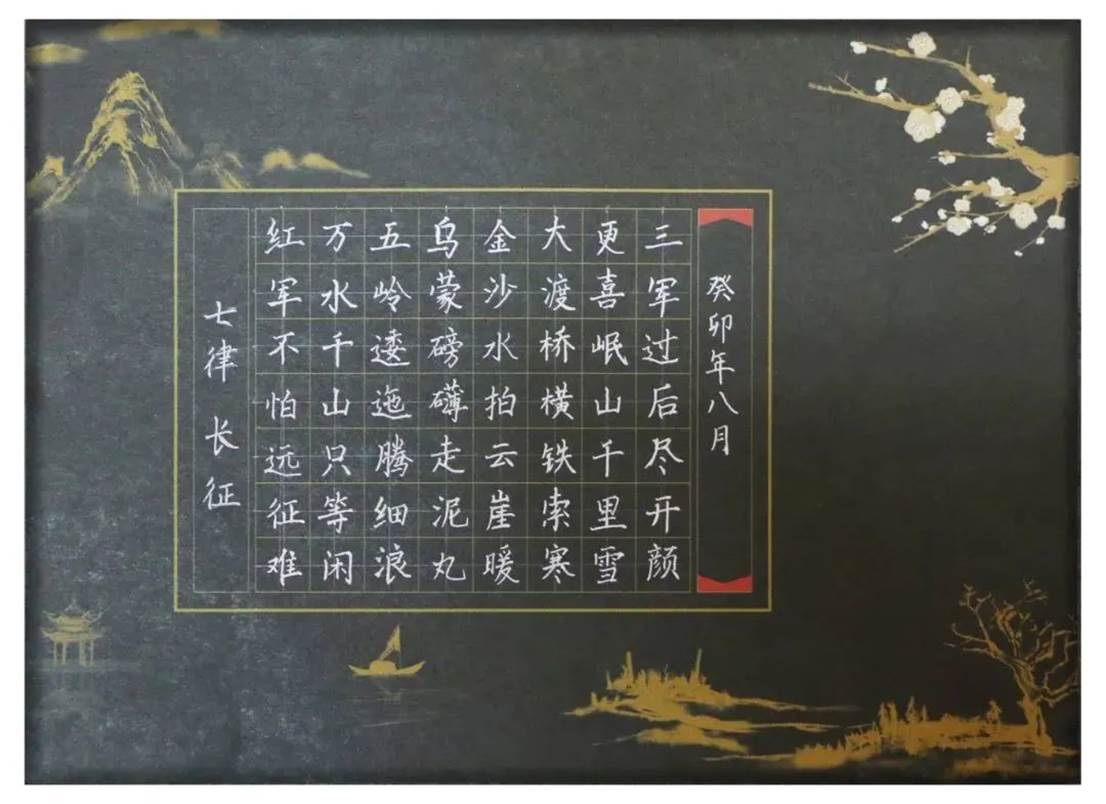 七律 长征
红军不怕远征难
万水千山只等闲
五岭逶迤腾细浪
乌蒙磅礴走泥丸
金沙水拍云崖暖
大渡桥横铁索寒
更喜岷山千里雪
三军过后尽开颜
癸卯年八月